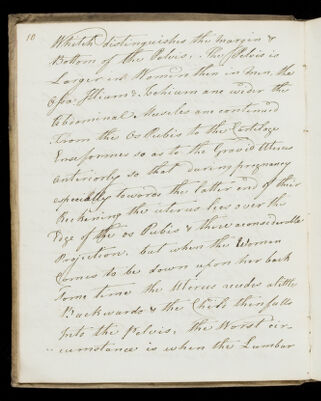 10
Which distinguishes the margin &
Bottom of the Pelvis. The Pelvis is
Larger in Women then in men, the
Ossa Illium & Ischium are wider the
Abdominal Muscles are continued
From the Os Pubis to the Cartilago
Ensiformes so as to the Gravid Uterus
anteriorly so that during pregnancy
especially towards the latter end of their
Reckening the uterus lies over the
Edge of the os Pubis & there a considerable
Projection. but when the Woman
Comes to be down upon her back
Some time the Uterus recedes a little
Backwards & the Child then falls
Into the Pelvis, the Worst cir-
-cumstance is when the Lumbar